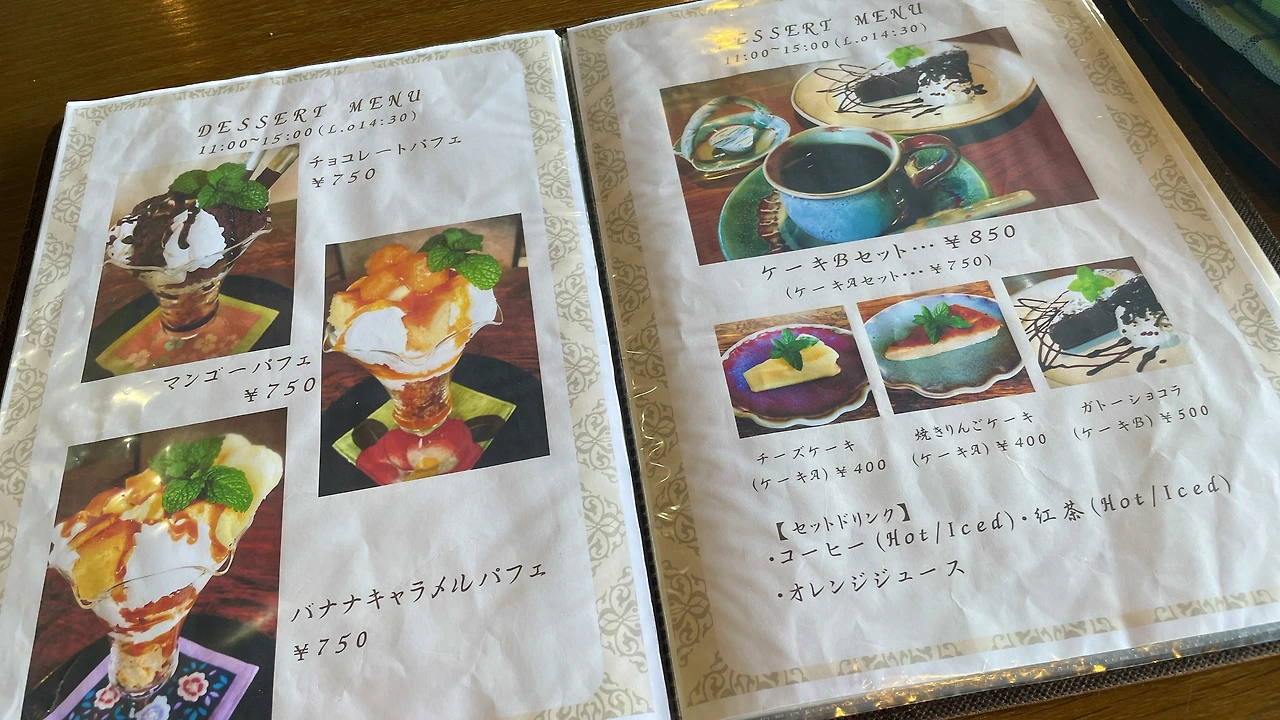 DESSERT MENU
11:00~15:00(L.o14:30)
チョコレートパフェ
¥750
マンゴーパフェ
¥750
バナナキャラメルパフェ
¥750
DESSERT MENU
11:00~15:00(L.o14:30)
ケーキBセット…¥850
(ケーキAセット…¥750)
チーズケーキ
(ケーキA)¥400
焼きりんごケーキ
(ケーキA)¥400
ガトーショコラ
(ケーキB)¥500
【セットドリンク】
・コーヒー(Hot/Iced)・紅茶(Hot/Iced)
・オレンジジュース